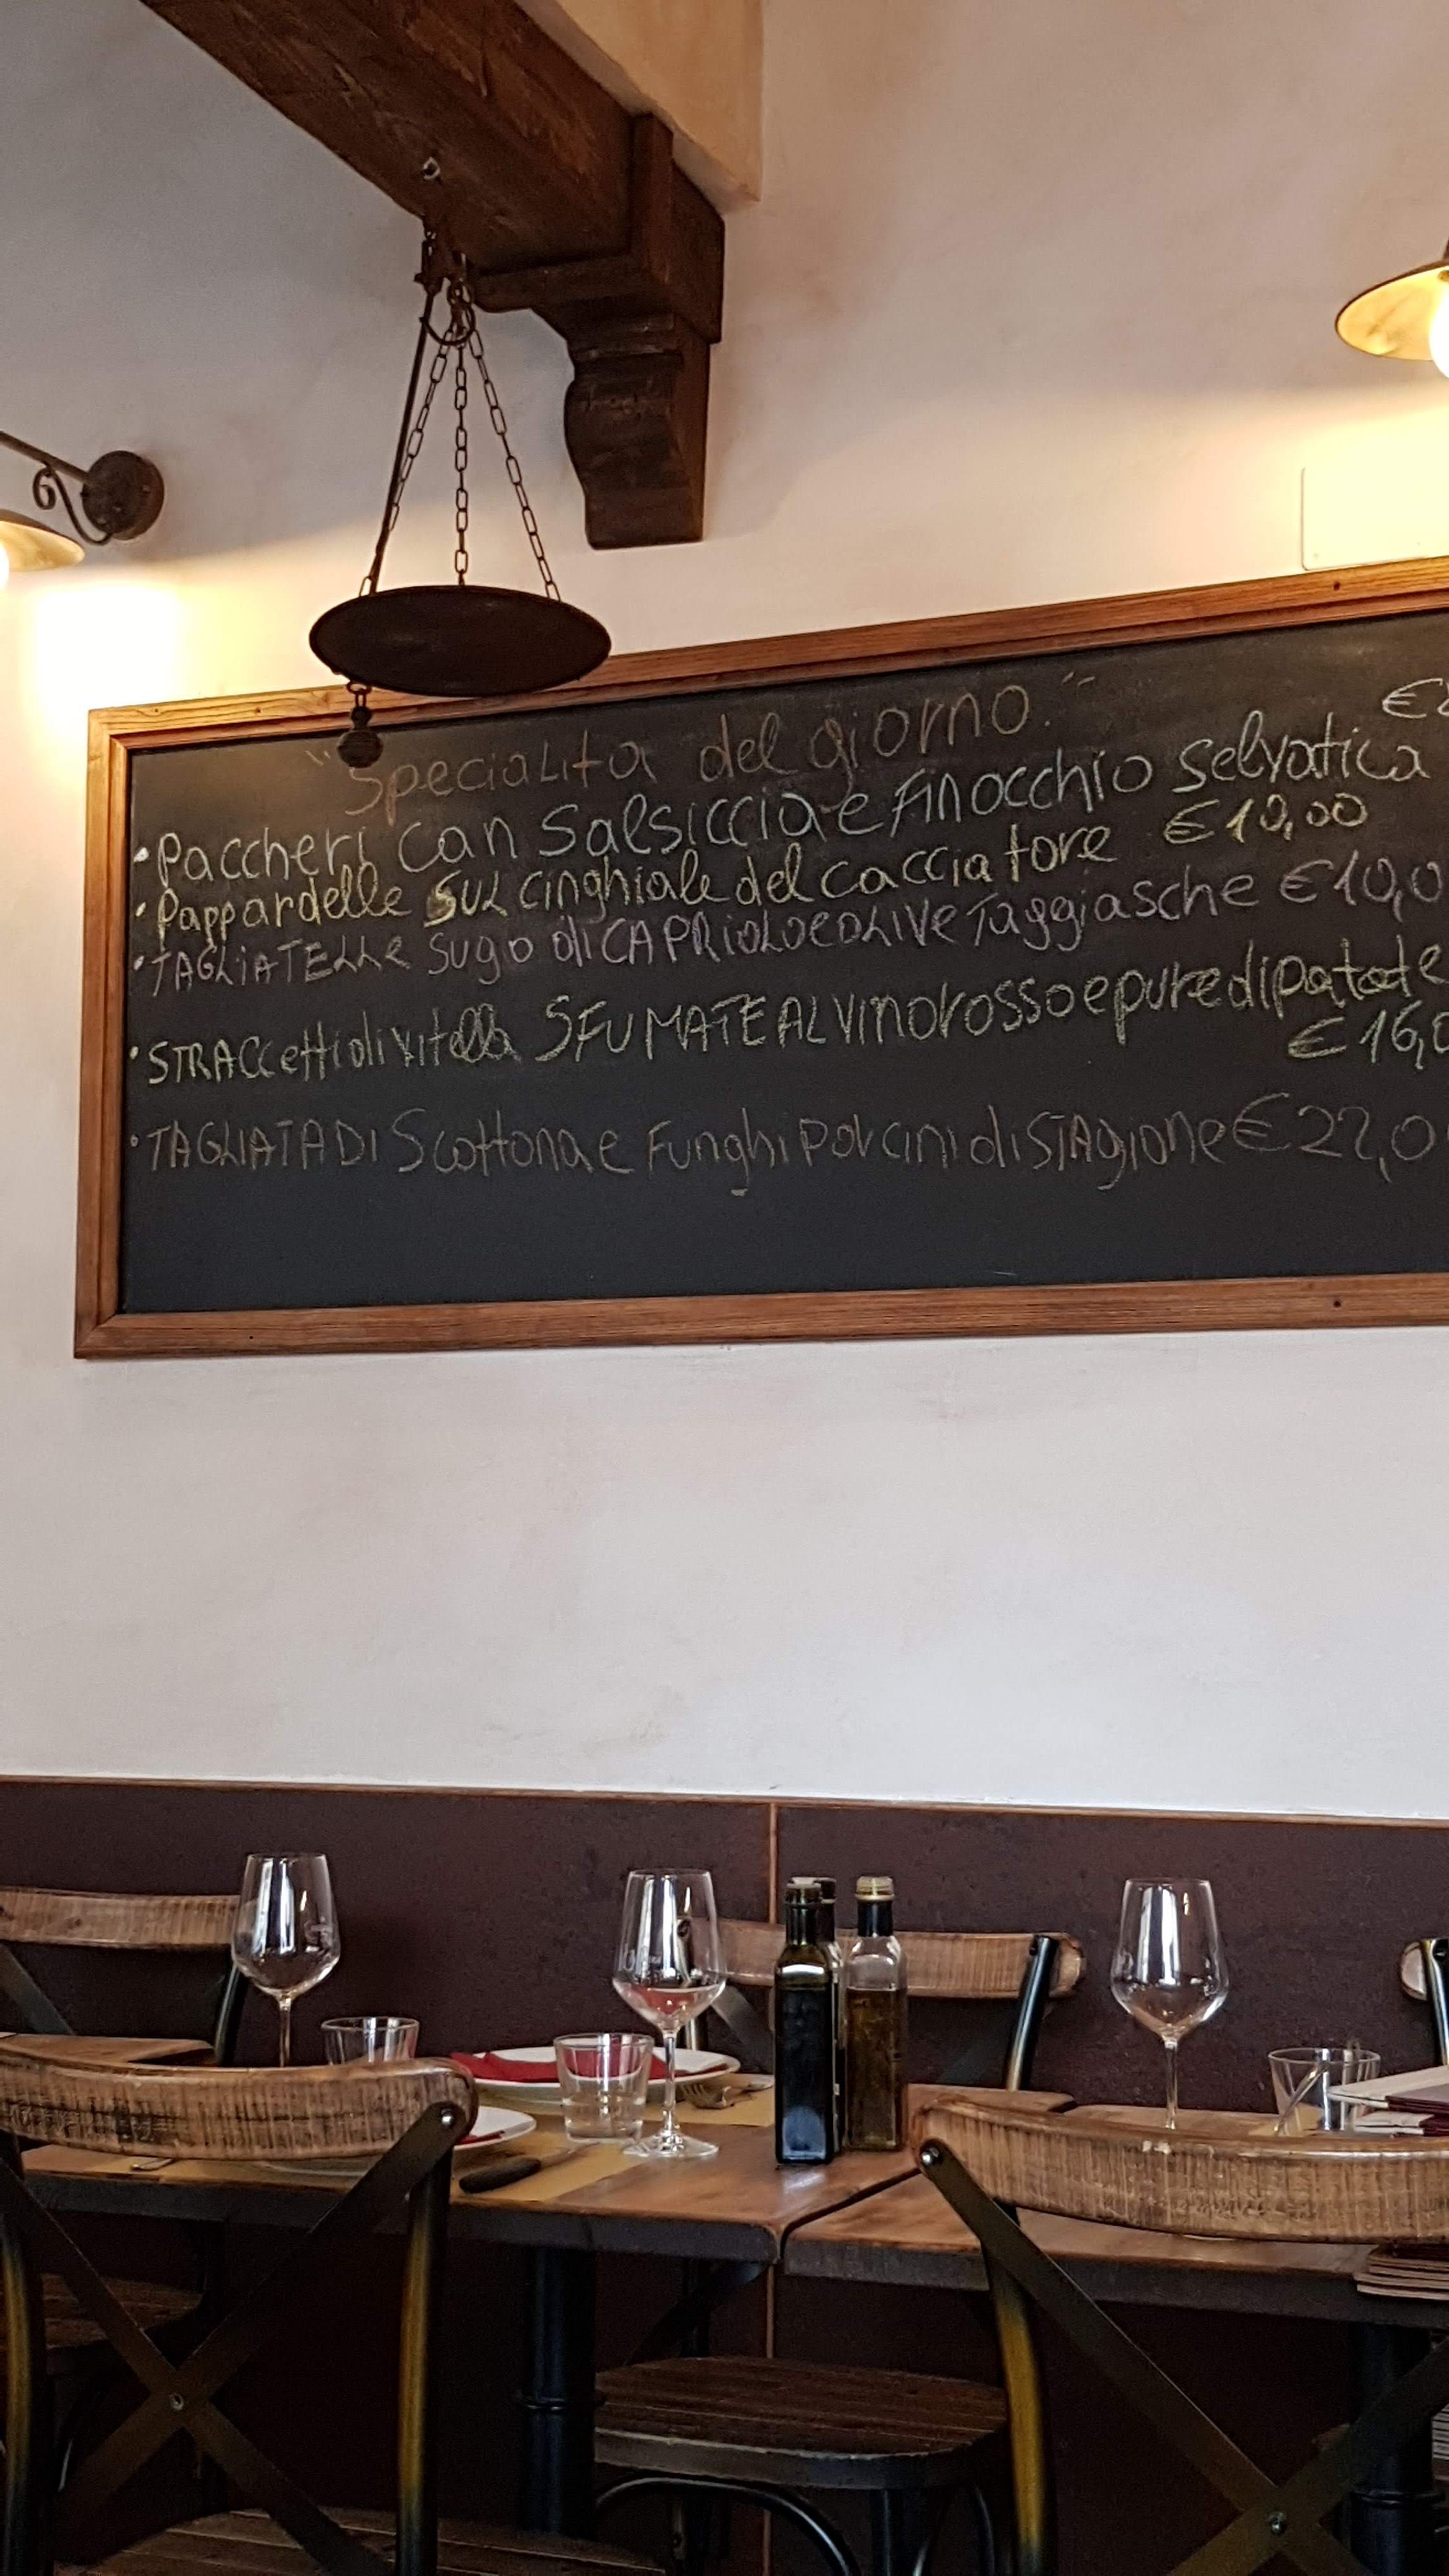 "Specialita del giorno."
• Paccheri con Salsiccia e Finocchio selvatica €
• Pappardelle SUL cinghiale del cacciatore €10,00
• TAGLIATELLE sugo di CAPRIOLO e OLIVE Taggiasche €10,0
• STRACCetti di vitella SFUMATE AL vino rosso e pure di patate
€16,0
• TAGLIATA DI Scottona e Funghi porcini di STAgione €22,0